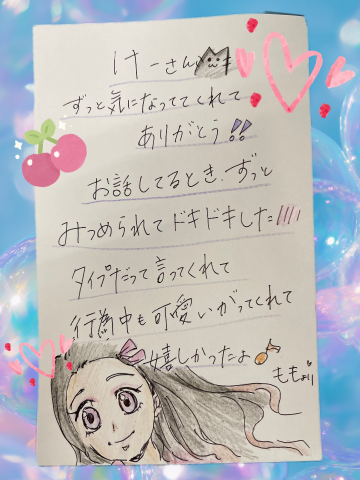 けーさん
ずっと気になっててくれて
ありがとう!!
お話してるとき、ずっと
みつめられてドキドキした////
タイプだって言ってくれて
行為中も可愛いがってくれて
嬉しかったよ♪
ももより